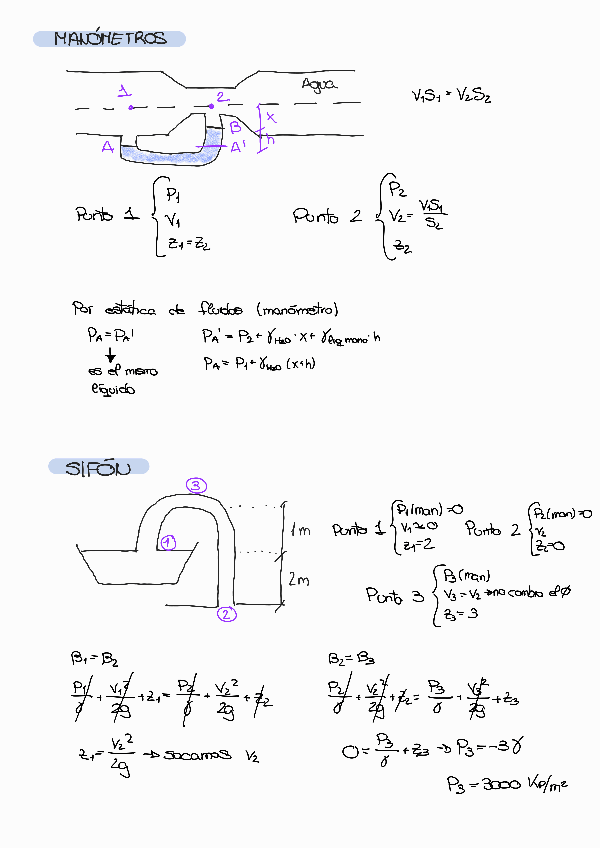 MANÓMETROS
Agua
1
2
x
B
A
A'
h
V1S1 = V2S2
Punto 1 { P1
V1
z1 = z2
Punto 2 { P2
V2 = V1S1/S2
z2
Por estática de fluidos (manómetro)
PA = PA'
PA' = P2 + γH2O · x + γliq mano · h
↓
es el mismo
líquido
PA = P1 + γH2O (x+h)
SIFÓN
3
1
1m
2m
2
Punto 1 { P1(man) = 0
V1 ≈ 0
z1 = 2
Punto 2 { P2(man) = 0
V2
z2 = 0
Punto 3 { P3(man)
V3 = V2 → no cambia el ø
z3 = 3
B1 = B2
P1/γ + V1²/2g + z1 = P2/γ + V2²/2g + z2
z1 = V2²/2g → sacamos V2
B2 = B3
P2/γ + V2²/2g + z2 = P3/γ + V3²/2g + z3
0 = P3/γ + z3 → P3 = -3γ
P3 = 3000 Kp/m²